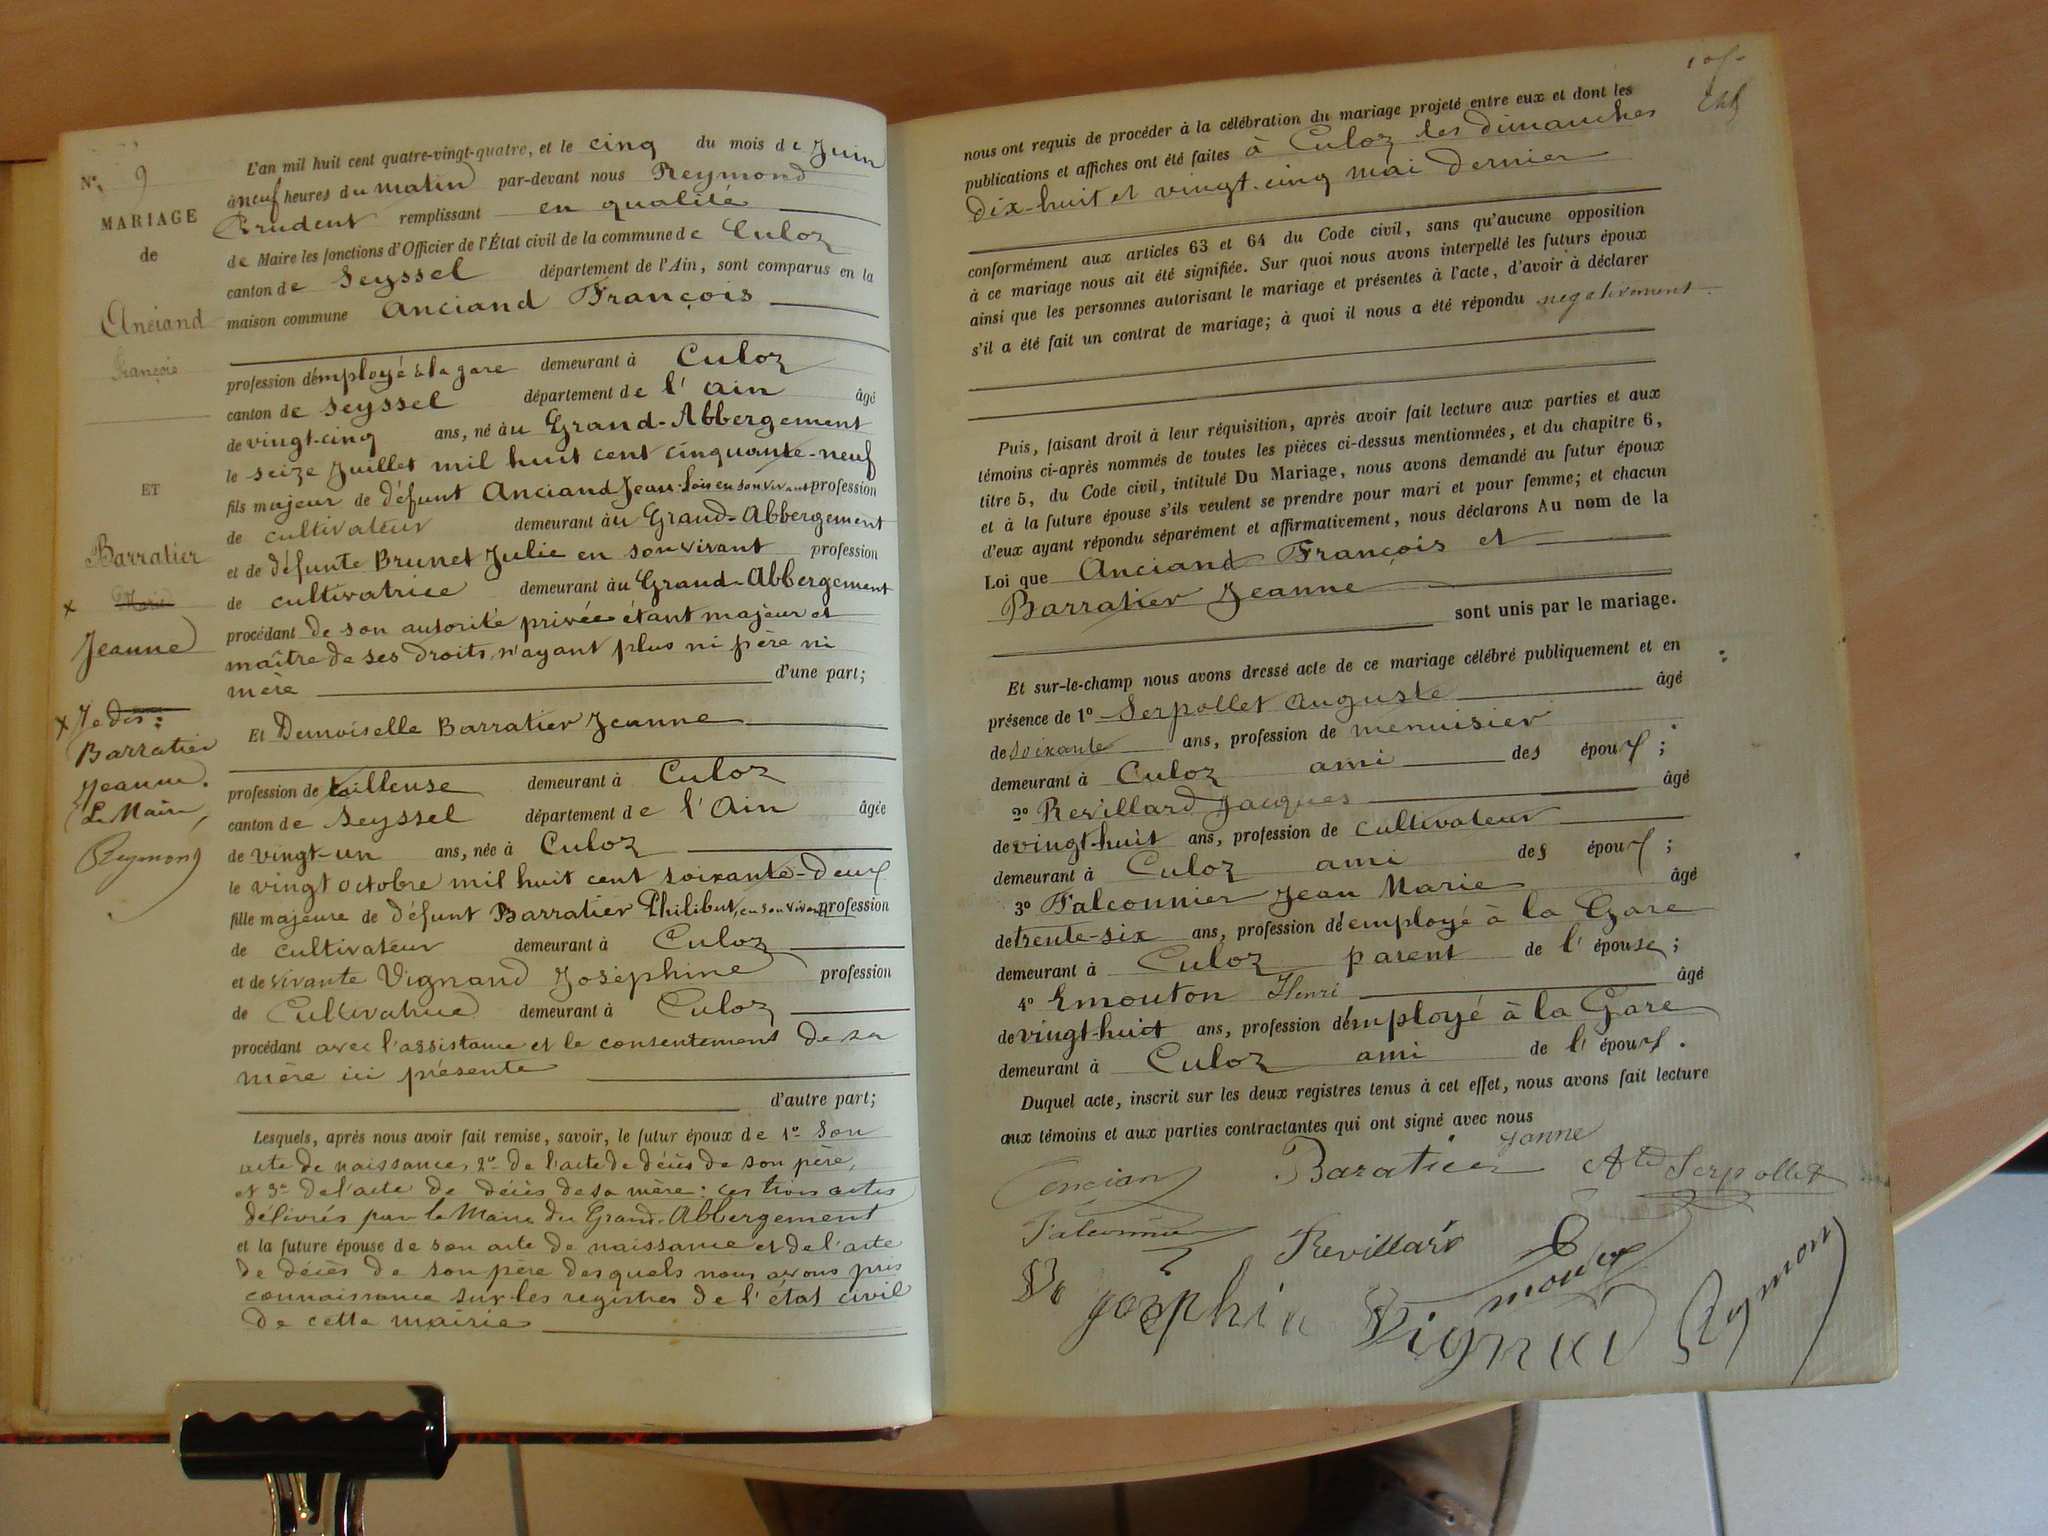 N° 9
MARIAGE
de
Anciand
François
ET
Barratier
x Marie
Jeanne
x Je dis :
Barratier
Jeanne.
Le Maire,
Reymond
L'an mil huit cent quatre-vingt-quatre, et le cinq du mois de Juin
à neuf heures du matin par-devant nous Reymond
Prudent remplissant en qualité
de Maire les fonctions d'Officier de l'État civil de la commune de Culoz
canton de Seyssel département de l'Ain, sont comparus en la
maison commune Anciand François
profession d'employé à la gare demeurant à Culoz
canton de Seyssel département de l'Ain âgé
de vingt-cinq ans, né à u Grand-Abbergement
le seize Juillet mil huit cent cinquante-neuf
fils majeur de défunt Anciand Jean-Louis en son vivant profession
de cultivateur demeurant à u Grand-Abbergement
et de défunte Brunet Julie en son vivant profession
de cultivatrice demeurant à u Grand-Abbergement
procédant de son autorité privée étant majeur et
maître de ses droits, n'ayant plus ni père ni
mère d'une part;
Et Demoiselle Barratier Jeanne
profession de tailleuse demeurant à Culoz
canton de Seyssel département de l'Ain âgée
de vingt-un ans, née à Culoz
le vingt octobre mil huit cent soixante-deux
fille majeure de défunt Barratier Philibert, en son vivant profession
de cultivateur demeurant à Culoz
et de vivante Vignand Joséphine profession
de Cultivatrice demeurant à Culoz
procédant avec l'assistance et le consentement de sa
mère ici présente
d'autre part;
Lesquels, après nous avoir fait remise, savoir, le futur époux de 1° Son
acte de naissance, 2° de l'acte de décès de son père,
et 3° de l'acte de décès de sa mère : ces trois actes
délivrés par le Maire du Grand-Abbergement
et la future épouse de son acte de naissance et de l'acte
de décès de son père desquels nous avons pris
connaissance sur les registres de l'état civil
de cette mairie
nous ont requis de procéder à la célébration du mariage projeté entre eux et dont les
publications et affiches ont été faites à Culoz les dimanches
dix-huit et vingt-cinq mai dernier
conformément aux articles 63 et 64 du Code civil, sans qu'aucune opposition
à ce mariage nous ait été signifiée. Sur quoi nous avons interpellé les futurs époux
ainsi que les personnes autorisant le mariage et présentes à l'acte, d'avoir à déclarer
s'il a été fait un contrat de mariage; à quoi il nous a été répondu négativement.
Puis, faisant droit à leur réquisition, après avoir fait lecture aux parties et aux
témoins ci-après nommés de toutes les pièces ci-dessus mentionnées, et du chapitre 6,
titre 5, du Code civil, intitulé Du Mariage, nous avons demandé au futur époux
et à la future épouse s'ils veulent se prendre pour mari et pour femme; et chacun
d'eux ayant répondu séparément et affirmativement, nous déclarons Au nom de la
Loi que Anciand François et
Barratier Jeanne
sont unis par le mariage.
Et sur-le-champ nous avons dressé acte de ce mariage célébré publiquement et en
présence de 1° Serpollet Auguste âgé
de soixante ans, profession de menuisier
demeurant à Culoz ami des époux ;
2° Revillard Jacques âgé
de vingt-huit ans, profession de cultivateur
demeurant à Culoz ami des époux ;
3° Falconnier Jean Marie âgé
de trente-six ans, profession d'employé à la Gare
demeurant à Culoz parent de l'épouse ;
4° Emouton Henri âgé
de vingt-huit ans, profession d'employé à la Gare
demeurant à Culoz ami de l'époux.
Duquel acte, inscrit sur les deux registres tenus à cet effet, nous avons fait lecture
aux témoins et aux parties contractantes qui ont signé avec nous
Jeanne
Ancian Baratier Ate Serpollet
Falconnier Revillard
Ve Josephin Vignad Reymond